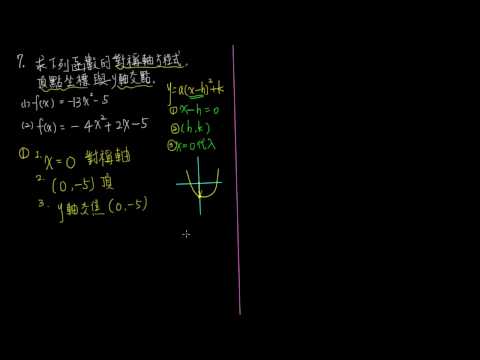 7. 求下列函數的對稱軸方程式,
頂點坐標與y軸交點.
(1) f(x) = -13x²-5
(2) f(x) = -4x²+2x-5
① 1. x=0 對稱軸
2. (0,-5) 頂
3. y軸交點 (0,-5)
y=a(x-h)²+k
① x-h=0
② (h,k)
③ x=0代入